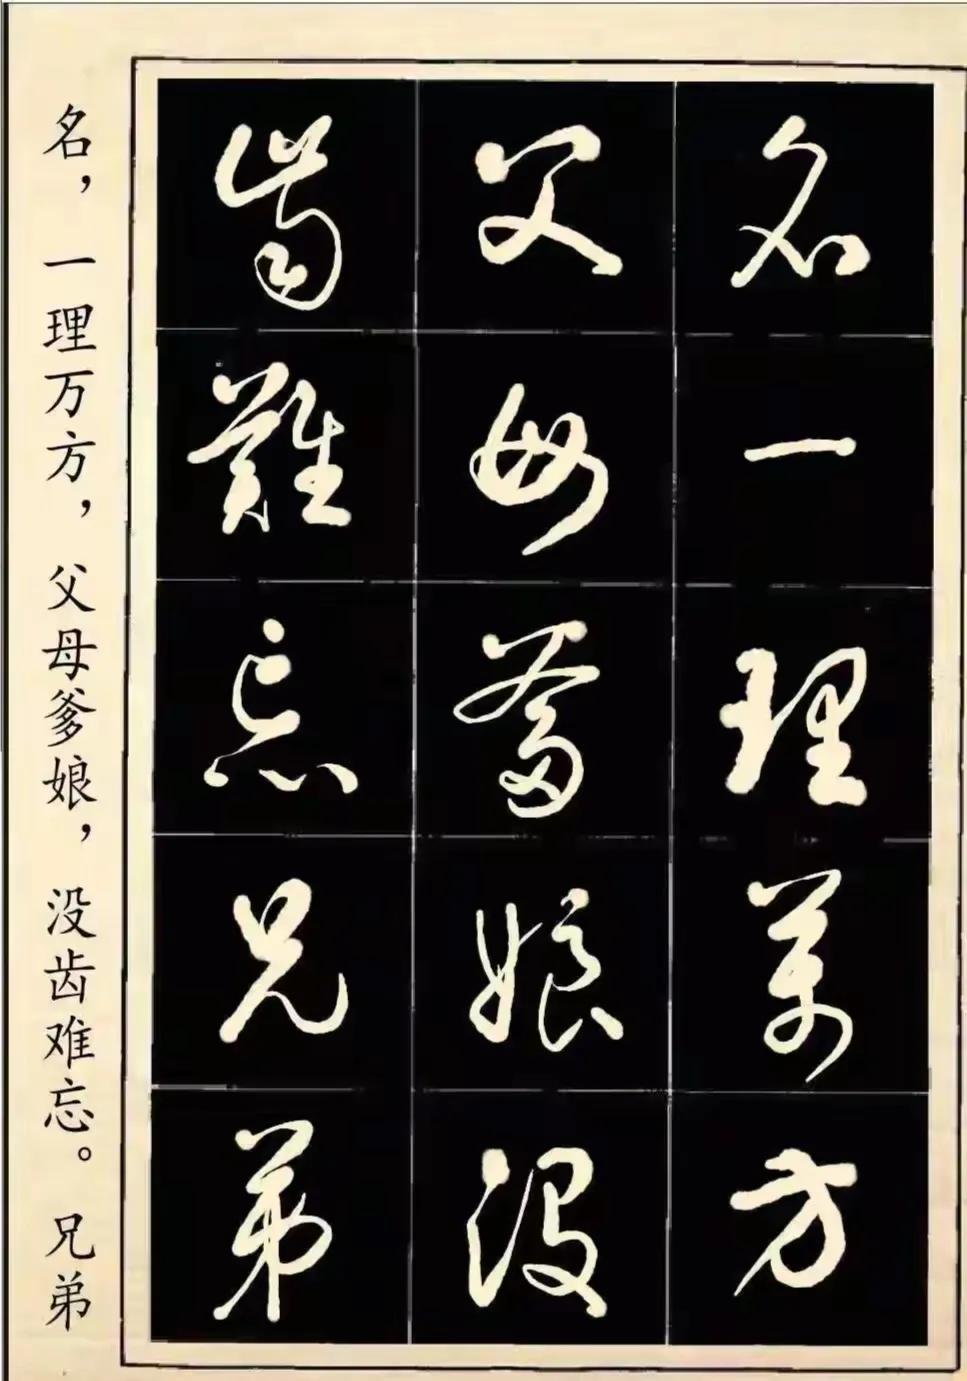 名一理萬方
父母爹娘没
齒難忘兄弟
名，一理万方，父母爹娘，没齿难忘。兄弟